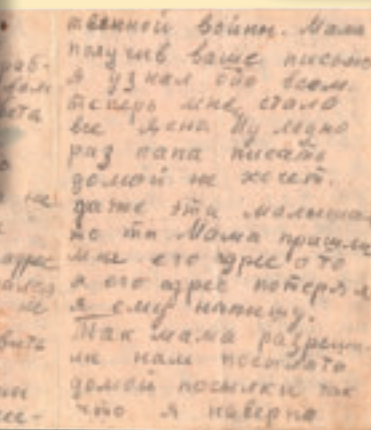 раб-
твенной войны. Мама
получив ваше письмо
я узнал обо всем.
теперь мне стало
все ясно Ну ладно
раз папа писать
домой не хочет.
не
даже эти малыша
то ты Мама пришли
адрес
мне его адрес ато
я его адрес потерял
не
я ему напишу.
Так мама разреши-
ли нам посылать
домой посылки так
что я наверно